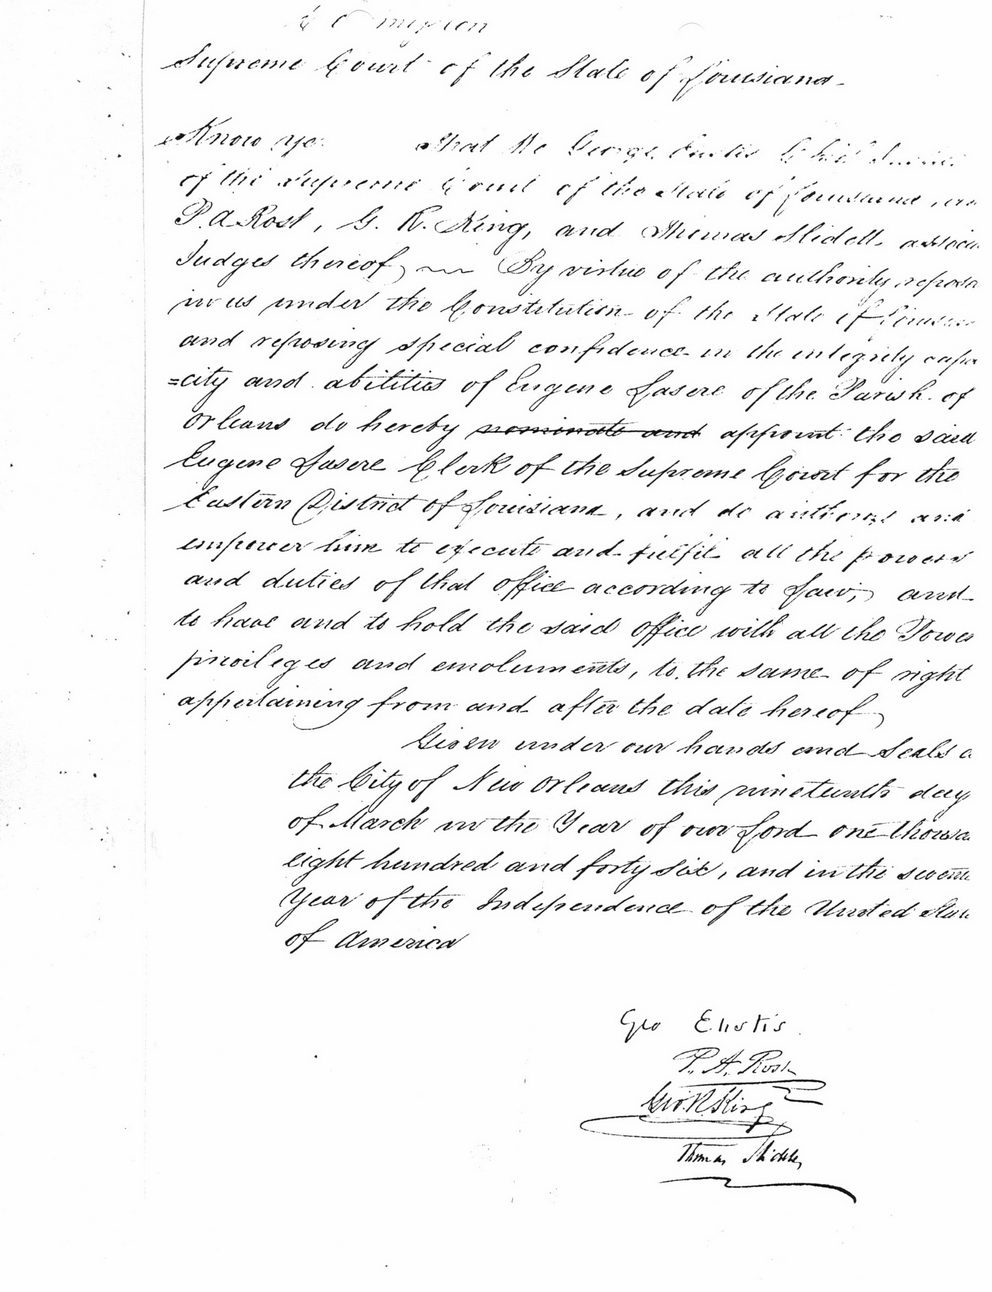 Supreme Court of the State of Louisiana
Know ye. That We George Eustis Chief Justice
of the Supreme Court of the State of Louisiana, an
P. A Rost, G. R. King, and Thomas Slidell associ
Judges thereof, By virtue of the authority repos
in us under the Constitution of the State of Louisia
and reposing special confidence in the integrity capa
=city and abilities of Eugene Lasere of the Parish of
Orleans do hereby nominate and appoint the said
Eugene Lasere Clerk of the Supreme Court for the
Eastern District of Louisiana, and do authorize and
empower him to execute and fulfil all the powers
and duties of that office according to Law; and
to have and to hold the said office with all the Powe
privileges and emoluments, to the same of right
appertaining from and after the date hereof,
Given under our hands and Seals a
the City of New Orleans this nineteenth day
of March in the Year of our Lord one thousa
eight hundred and forty six, and in the seven
Year of the Independence of the United Stat
of America
Geo Eustis.
P. A. Rost
Geo. R. King
Thomas Slidell